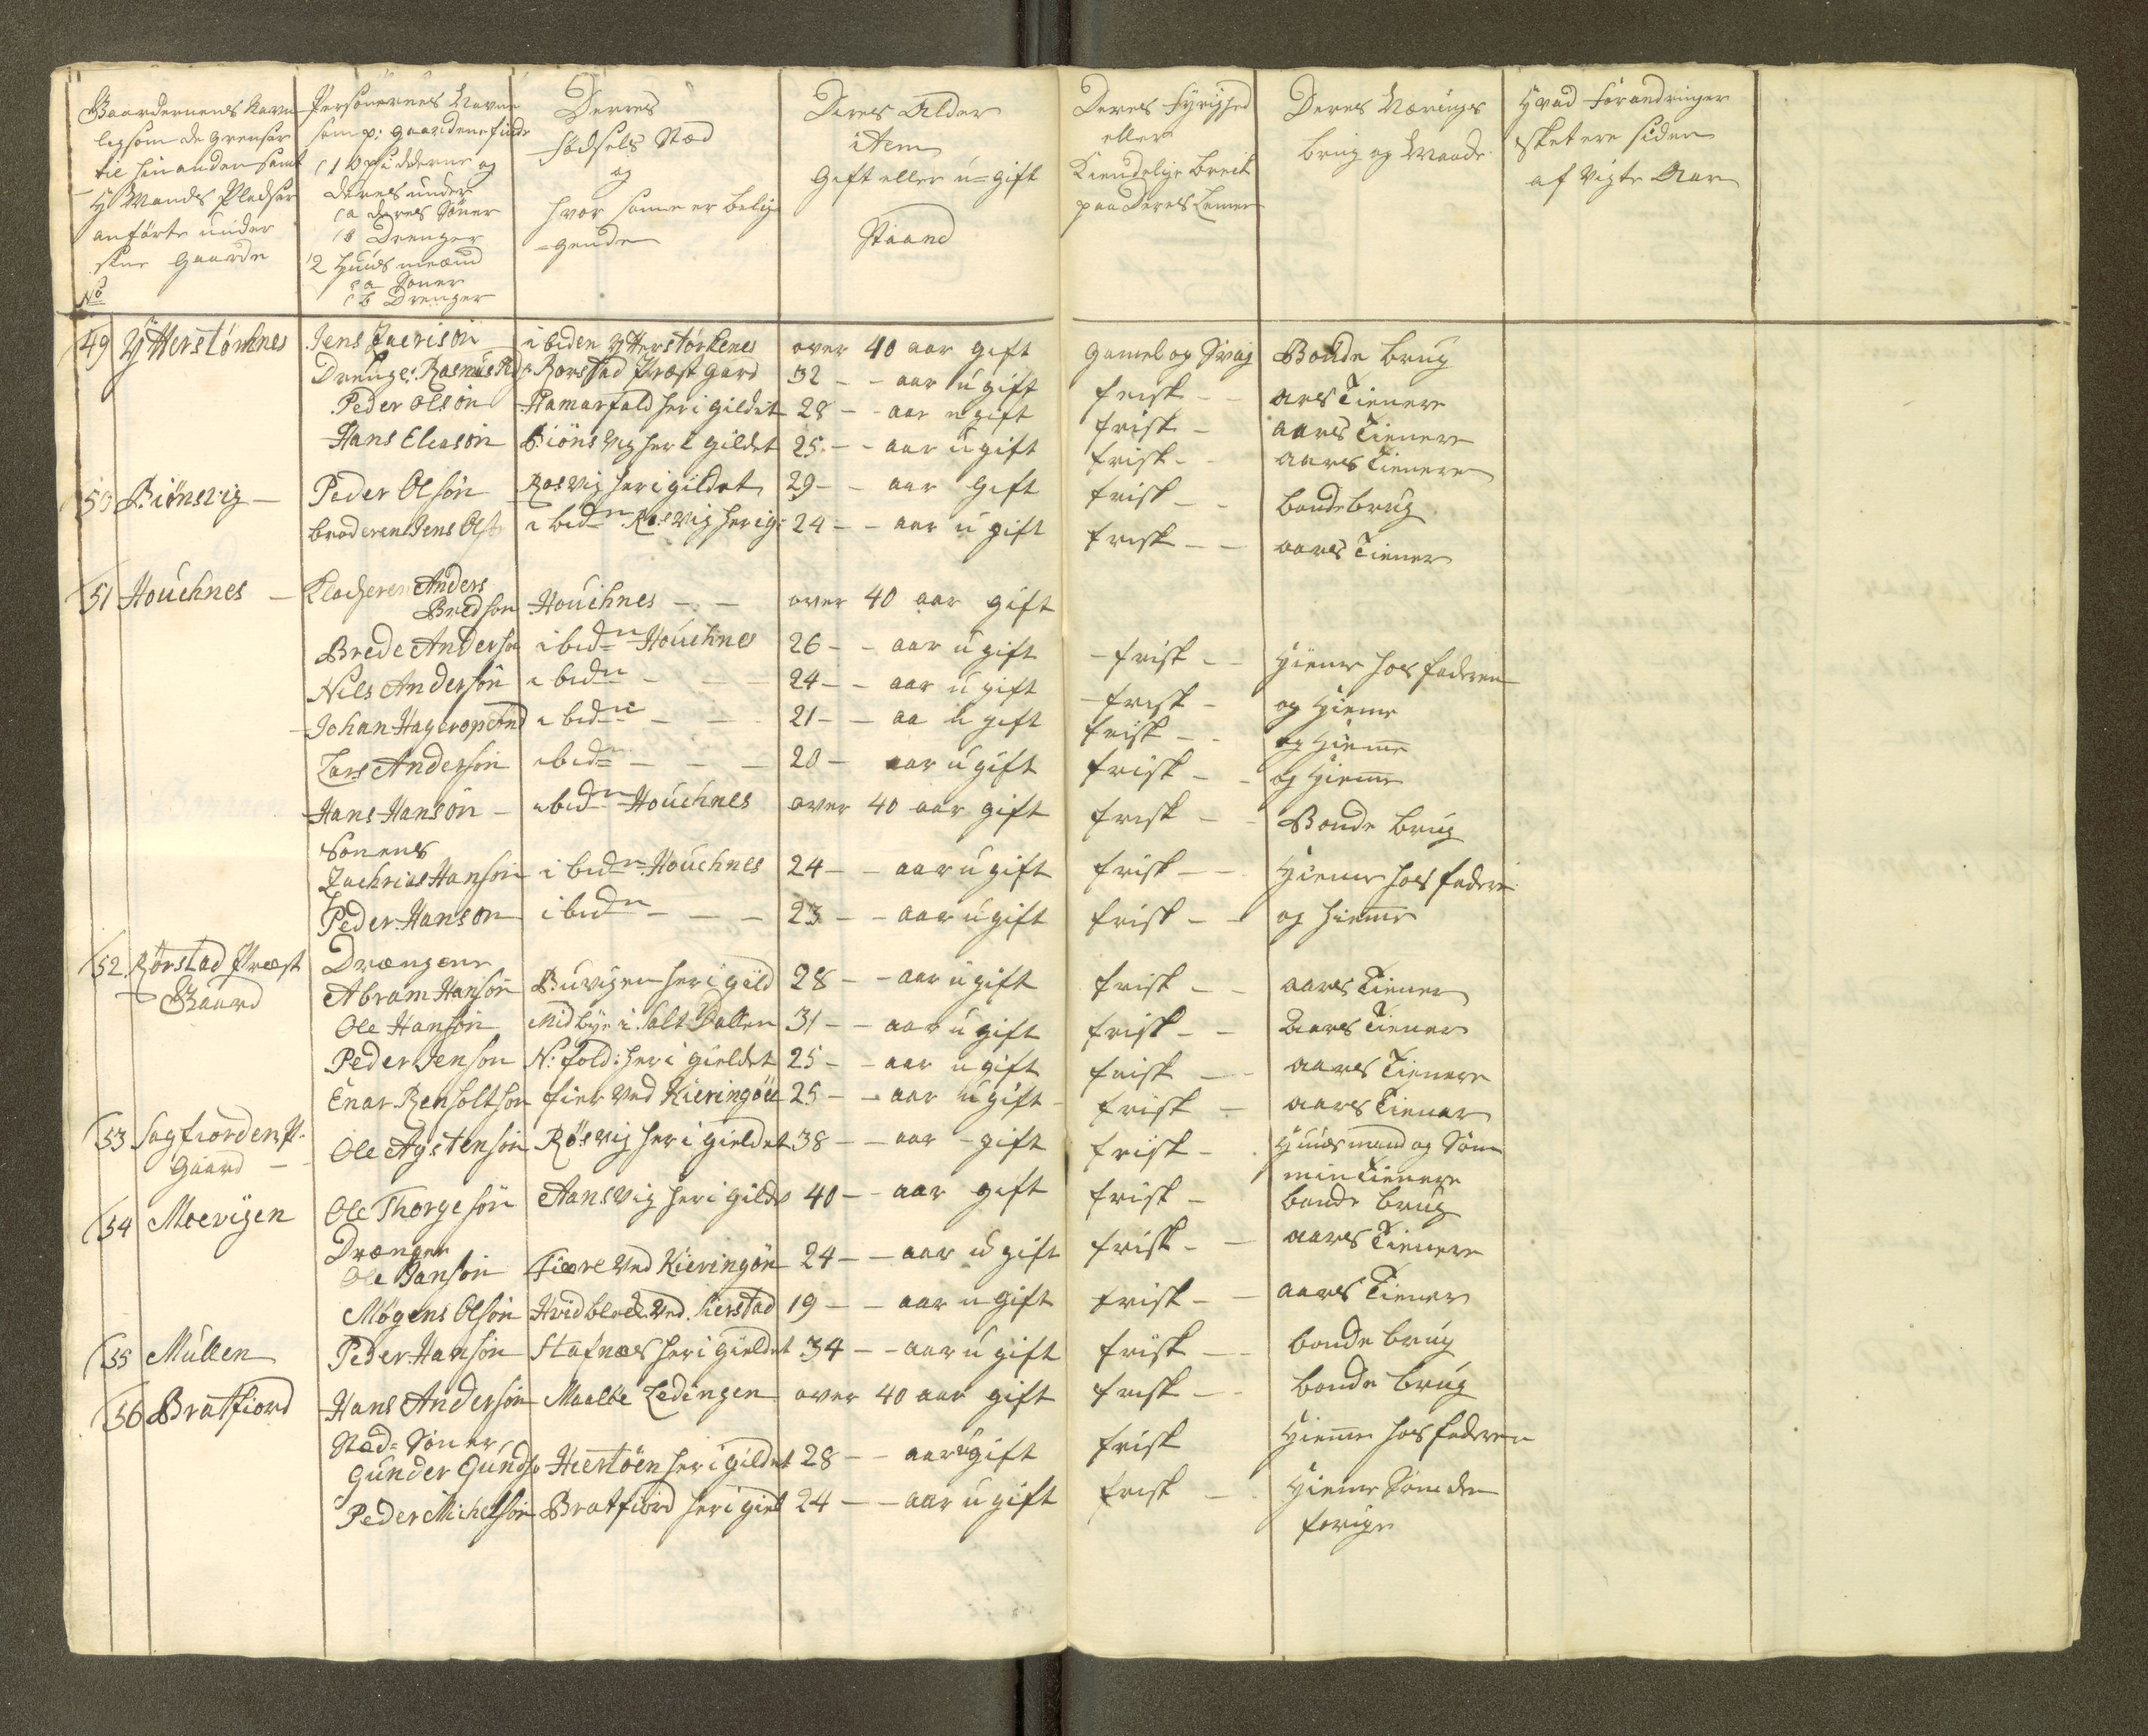 Gaardernens Navn
ligsom de grensar
til hinanden samt
Huus Mands Pladser
anførte under
sine Gaarde
No
Personernes Navne
som p: gaardene finds
(1 Opsidderne og
deres under
(a deres Søner
(b Drenger
2 Huus mænd
(a Søner
(b Drenger
Deres
fødsels Stæd
og
hvor samme er belig
=gende
Deres Alder
item
Gift eller u=gift
Stand
Deres Fyrighed
eller
Kiendelige Breck
paa Deres Lemer
Deres Nærings
brug og Maade
Hvad forandringer
skeet ere siden
af Vigte Aar
49 Ytterstørknes Jens Zacrisøn ibiden Ytterstørkenes over 40 aar gift gamel og Svag Bonde brug
Drenge: Rasmus Rørstad Præstgard 32 - - aar u gift frisk - - ars Tienere
Peder Olsøn Hamarfald her i gildet 28 - - aar u gift frisk - aars Tienere
Hans Elesøn Biønsvig her i gildet 25 - - aar u gift frisk - aars Tienere
50 Biønsvig - Peder Olsøn Røsvig her i gildet 29 - - aar gift frisk - - bondebrug
broderen Jens Ols ibidn Røsvig her i g: 24 - - aar u gift frisk - - aars Tiener
51 Houchnes - Klockeren Anders
Bredson Houchnes - - over 40 aar gift
Brede Anderson ibidn Houchnes 26 - - aar u gift - frisk - - Hieme hos faderen
Nils Andersøn ibidn - - 24 - - aar u gift - frisk - og Hieme
Johan Hagerop And ibidn - - 21 - - aa u gift frisk - - og Hieme
Lars Andersøn ibidn - - - 20 - aar u gift frisk - - og Hieme
Hans Hansøn - ibidn Houchnes over 40 aar gift frisk - - Bonde brug
Sønens
Zachrias Hansøn ibidn Houchnes 24 - - aar u gift frisk - - Hieme hos fadere
Peder Hanson ibidn - - - 23 - - aar u gift frisk - - og hieme
52 Rørstad Præst
Gaard
Drængene
Abram Hansøn Buvigen her i gild 28 - - aar u gift frisk - - aars Tiener
Ole Hansøn Midbye i Salt Dallen 31 - - aar u gift frisk - - Aars Tiener
Peder Jenson N: fold: her i gieldet 25 - - aar u gift frisk - - aars Tienere
Enar Renholtson fier ved Kieringøe 25 - - aar u gift - frisk - aars Tiener
53 Sagfiorden P:
Gaard - Ole Agstensøn Røsvig her i gieldet 38 - - aar - gift frisk - Huusmand og Søn
min Tienere
54 Moevigen Ole Thorgesøn Aansvig her i gildet 40 - - aar gift frisk - bonde brug
Drænger
Ole Jansøn Fiære ved Kieringøe 24 - - aar u gift frisk - - aars Tienere
Mogens Olsøn Hvidblech ved Kierstad 19 - - aar u gift frisk - - aars Tiener
55 Mullen Peder Hansøn Stafnæs her i gieldet 34 - - aar u gift frisk - - bonde brug
56 Bratfiord Hans Andersøn Maalbe Ledingen over 40 aar gift frisk - - bonde brug
Sted= Søner
Gunder Gunds Heertøen her i gildet 28 - - aar ugift frisk Hieme hos faderen
Peder Michelsøn Bratfiord her i giel 24 - - aar u gift frisk - - Hieme Som den
forige